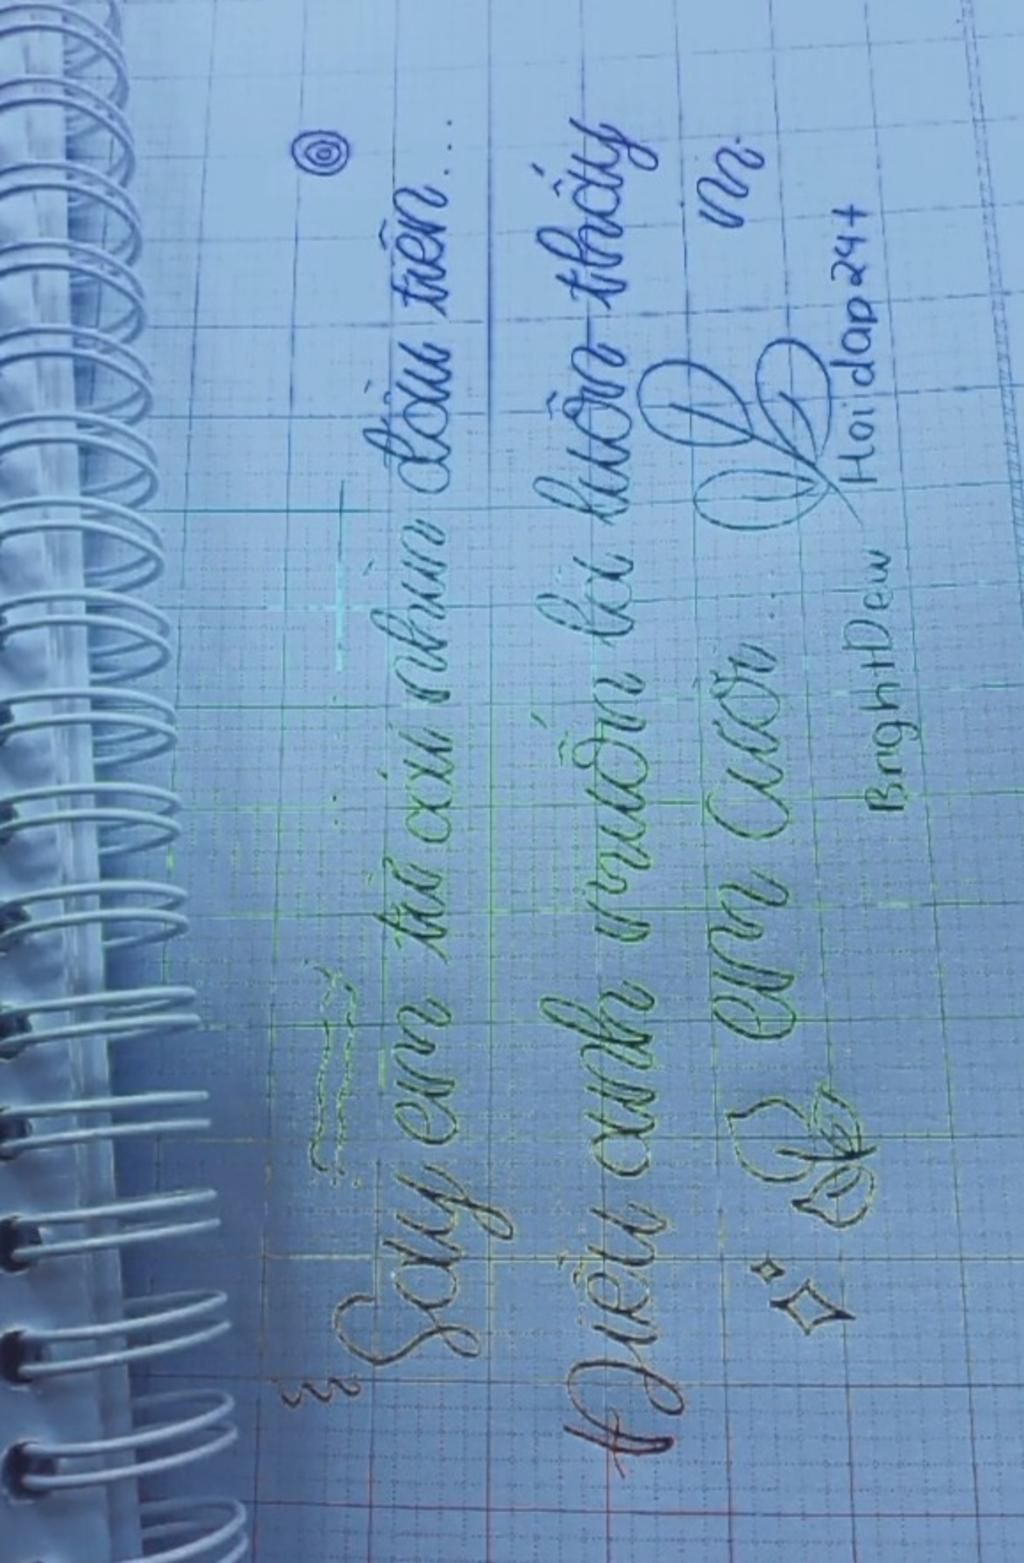 Say em từ cái nhìn đầu tiên...
Điều anh muốn là luôn thấy
em cười...
BrightDew / Hoidap247